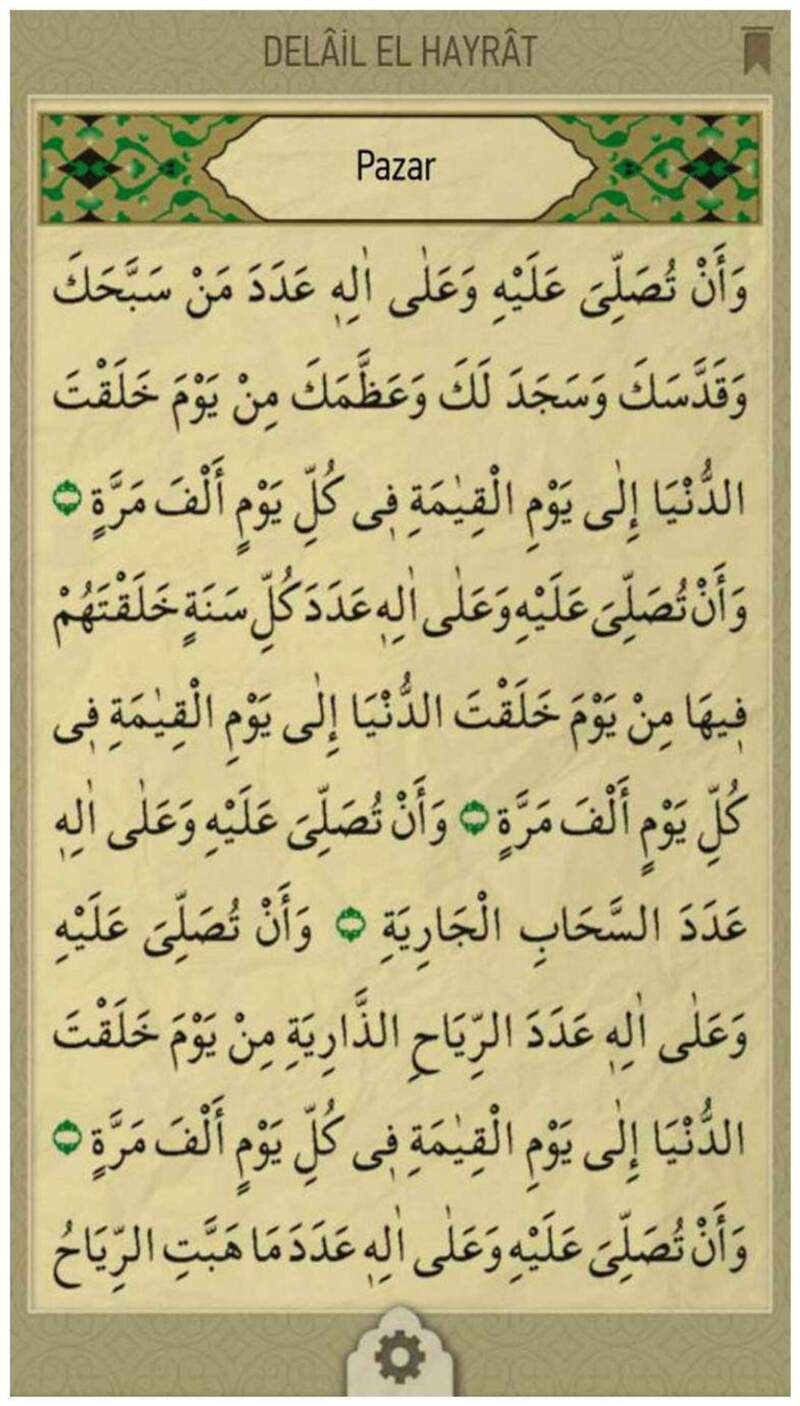 DELÂİL EL HAYRÂT
Pazar
وَأَنْ تُصَلِّىَ عَلَيْهِ وَعَلٰى اٰلِهٖ عَدَدَ مَنْ سَبَّحَكَ
وَقَدَّسَكَ وَسَجَدَ لَكَ وَعَظَّمَكَ مِنْ يَوْمَ خَلَقْتَ
الدُّنْيَا إِلٰى يَوْمِ الْقِيٰمَةِ فٖى كُلِّ يَوْمٍ أَلْفَ مَرَّةٍ
وَأَنْ تُصَلِّىَ عَلَيْهِ وَعَلٰى اٰلِهٖ عَدَدَ كُلِّ سَنَةٍ خَلَقْتَهُمْ
فٖيهَا مِنْ يَوْمَ خَلَقْتَ الدُّنْيَا إِلٰى يَوْمِ الْقِيٰمَةِ فٖى
كُلِّ يَوْمٍ أَلْفَ مَرَّةٍ وَأَنْ تُصَلِّىَ عَلَيْهِ وَعَلٰى اٰلِهٖ
عَدَدَ السَّحَابِ الْجَارِيَةِ وَأَنْ تُصَلِّىَ عَلَيْهِ
وَعَلٰى اٰلِهٖ عَدَدَ الرِّيَاحِ الذَّارِيَةِ مِنْ يَوْمَ خَلَقْتَ
الدُّنْيَا إِلٰى يَوْمِ الْقِيٰمَةِ فٖى كُلِّ يَوْمٍ أَلْفَ مَرَّةٍ
وَأَنْ تُصَلِّىَ عَلَيْهِ وَعَلٰى اٰلِهٖ عَدَدَ مَا هَبَّتِ الرِّيَاحُ